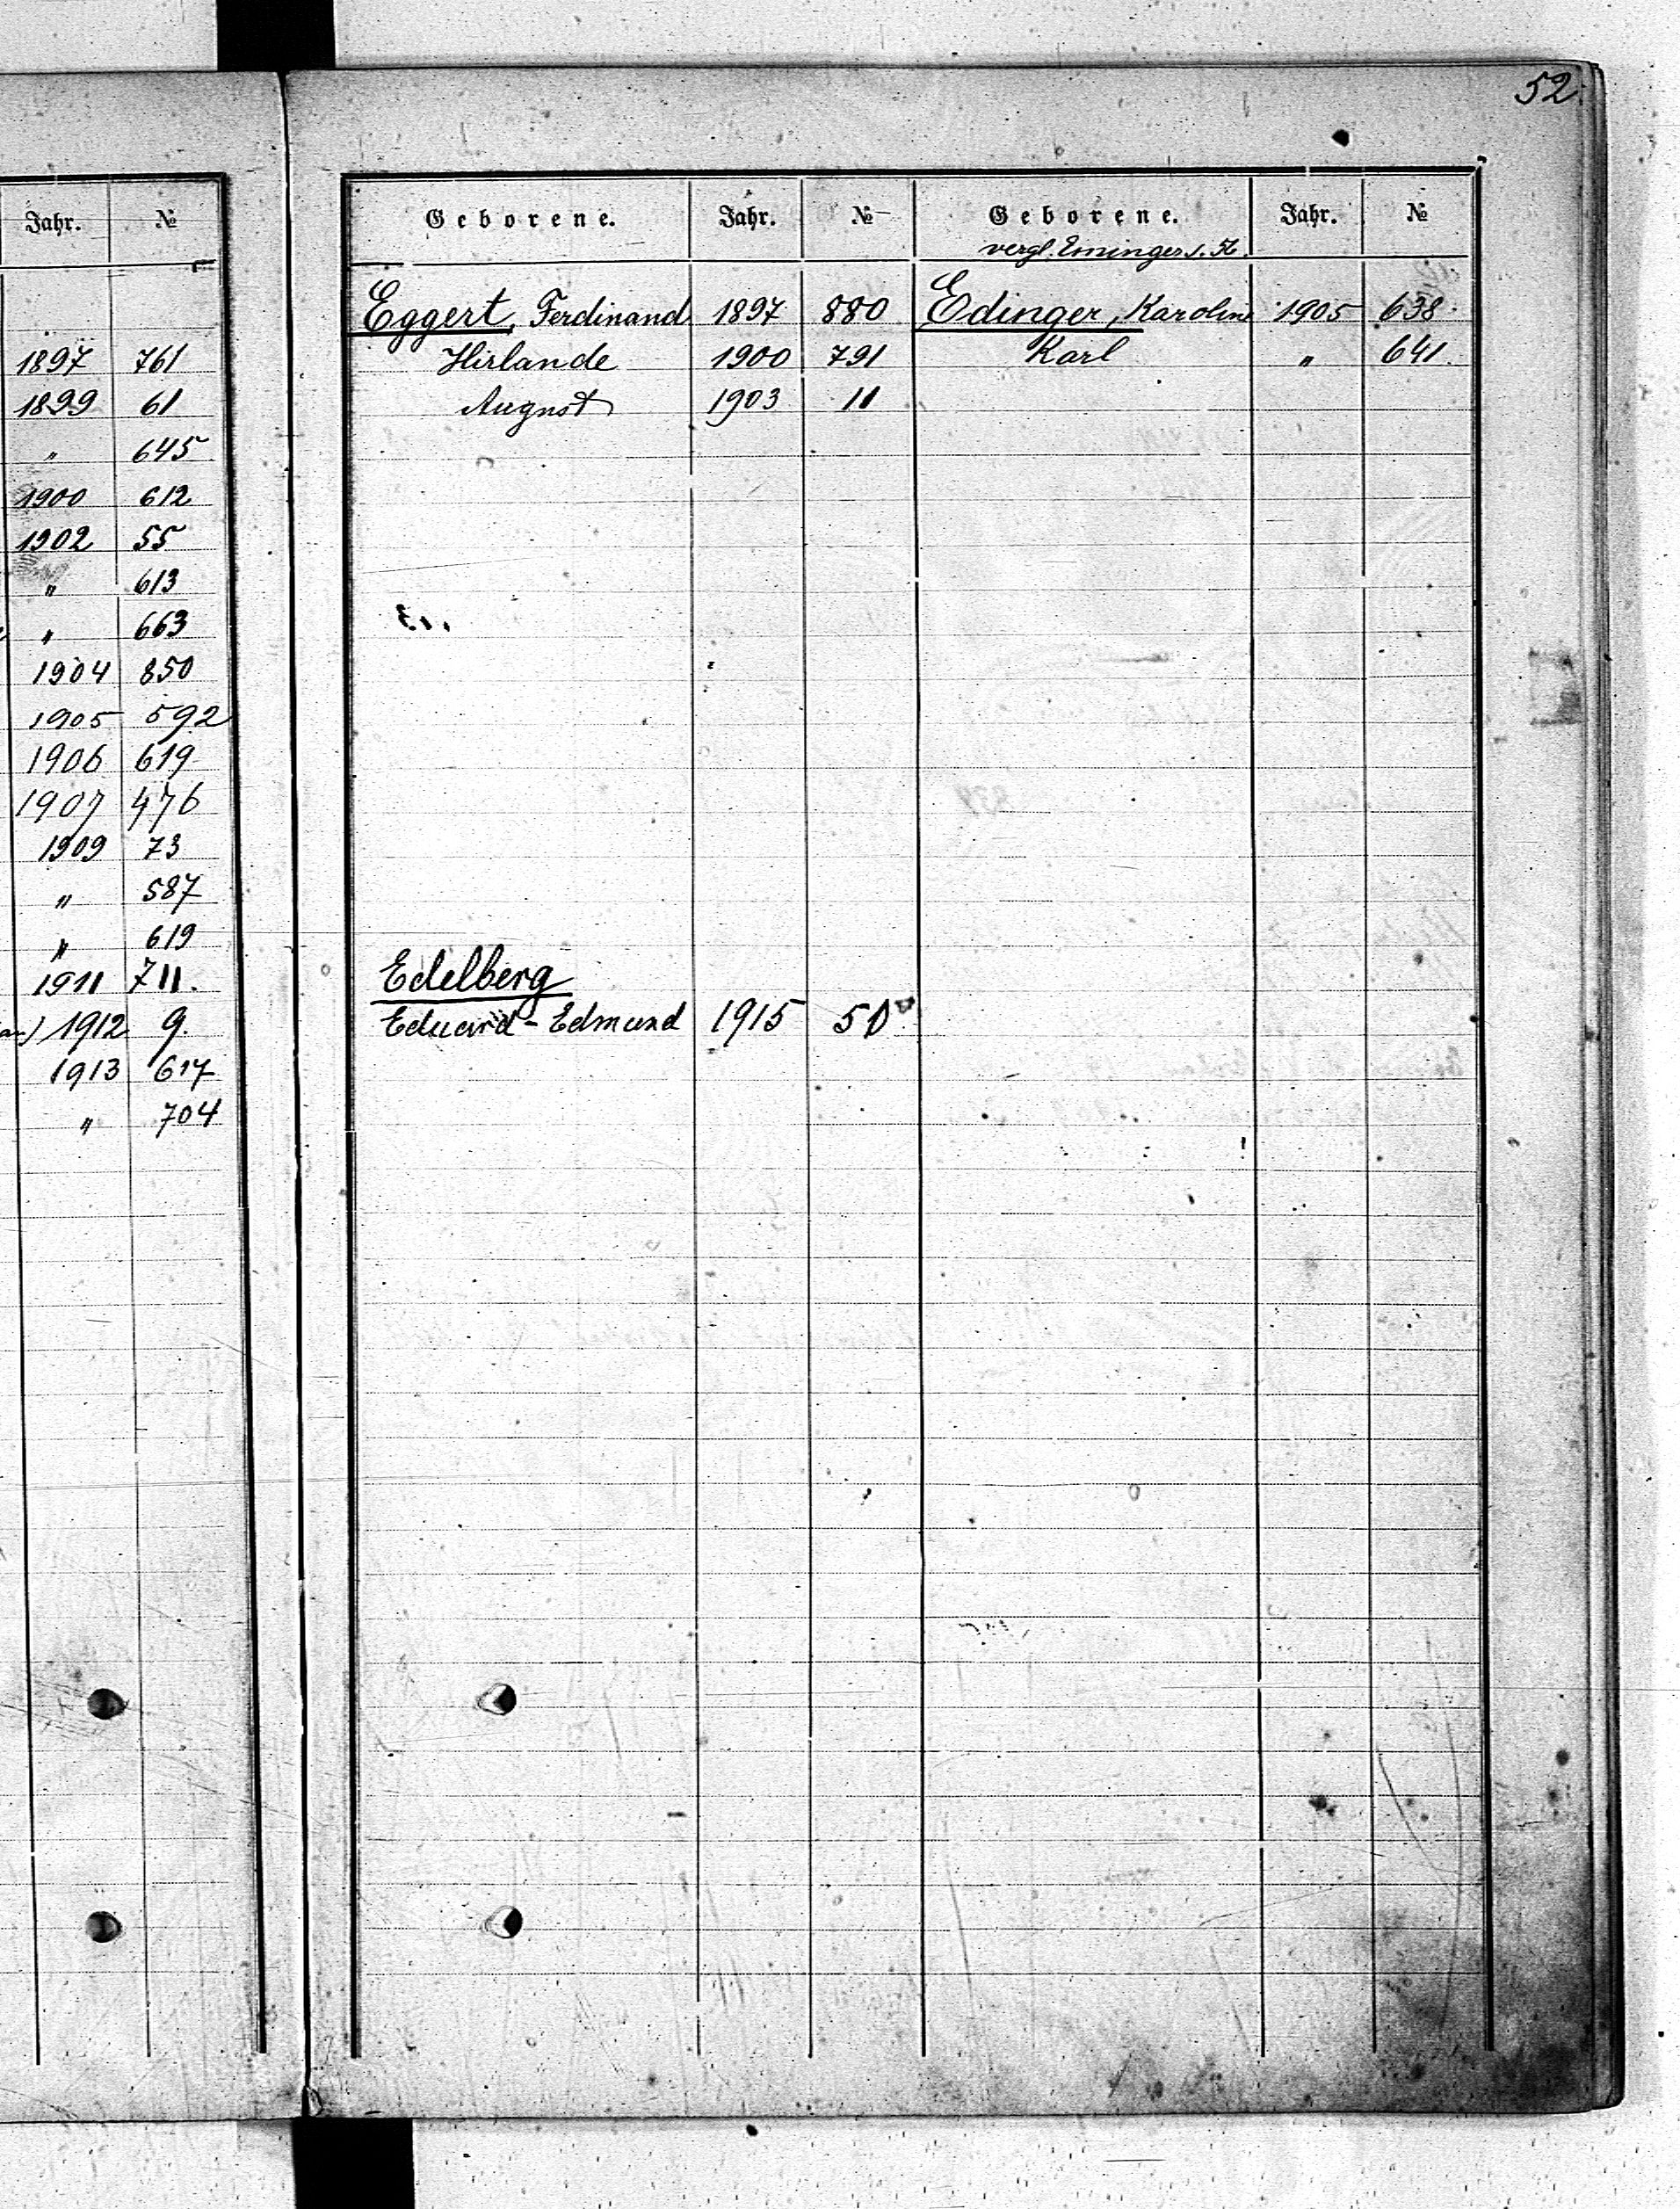 52.
Jahr. №
1897 761
1899 61
" 645
1900 612
1902 55
" 613
" 663
1904 850
1905 592
1906 619
1907 476
1909 73
" 587
" 619
1911 711.
1912 9.
1913 617
" 704
Geborene. Jahr. №
Eggert, Ferdinand 1897 880
Hirlande 1900 791
August 1903 11
Edelberg
Eduard-Edmund 1915 50
Geborene. Jahr. №
vergl. Eminger s.
Edinger, Karoline 1905 638.
Karl " 641.